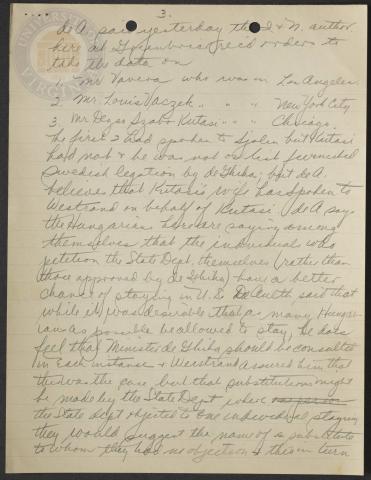 3.
de A said yesterday the I & N. author.
here at Greenboro rec'd orders to
take the data on
1. Mr Taverra who was in Los Angeles.
2. Mr. Louis Vaczek " " " New York City
3. Mr Dezso Szabo-Kutasi " " " Chicago.
The first 2 had spoken to Sjolin but Kutasi
had not & he was not on list furnished
Swedish legation by de Ghika; but de A.
believes that Kutasi's wife has spoken to
Westrand on behalf of Kutasi. de A says
the Hungarians here are saying among
themselves that the individuals who
petition the State Dept. themselves (rather than
those approved by de Ghika) have a better
chance of staying in U.S. said that
while it was desirable that as many Hungar-
ians as possible be allowed to stay, he does
feel that Minister de Ghika should be consulted
in each instance & Westrand assured him that
this was the case, but that substitutions might
be made by the State Dept, where
the State dept objected to one individual staying
they would suggest the name of a substitute
to whom they had no objection & this in turn